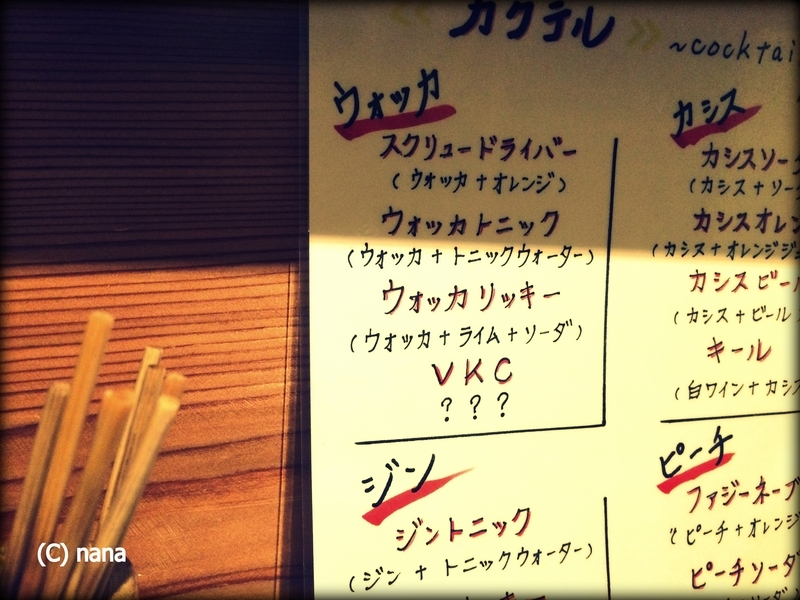 カクテル
~cocktai
ウォッカ
スクリュードライバー
(ウォッカ+オレンジ)
ウォッカトニック
(ウォッカ+トニックウォーター)
ウォッカリッキー
(ウォッカ+ライム+ソーダ)
VKC
???
ジン
ジントニック
(ジン+トニックウォーター)
カシス
カシスソー
(カシス+ソー
カシスオレン
(カシス+オレンジジ
カシスビー
(カシス+ビール
キール
(白ワイン+カシス
ピーチ
ファジーネーブ
(ピーチ+オレンジ
ピーチソーダ
(C) nana